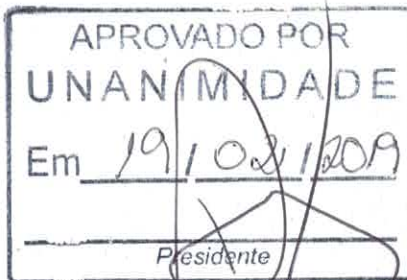 APROVADO POR
UNANIMIDADE
Em 19/02/2019
Presidente